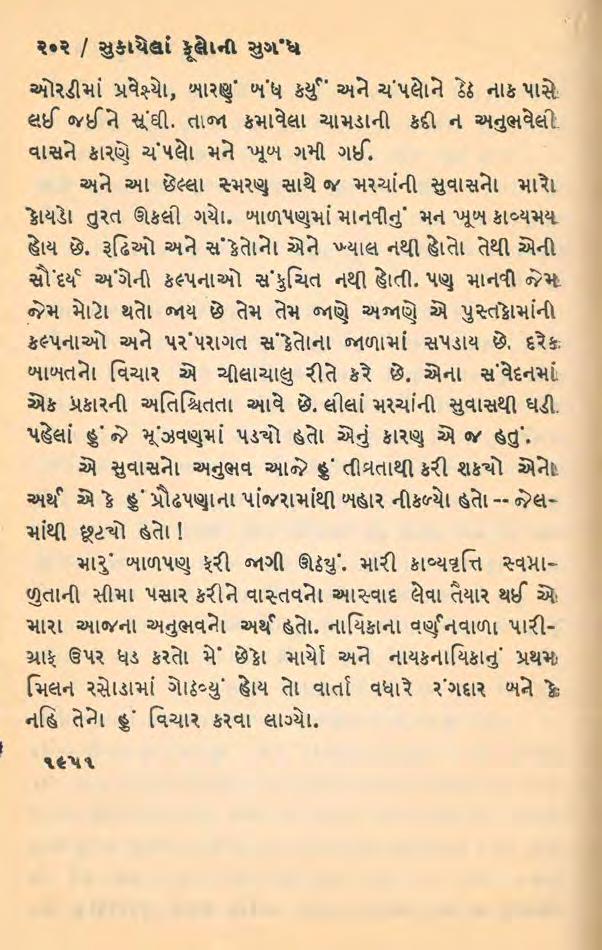 ૨૦૨ / સુકાયેલાં ફૂલોની સુગંધ
ઓરડીમાં પ્રવેશ્યો, બારણું બંધ કર્યું અને ચંપલોને ઠેઠ નાક પાસે
લઈ જઈને સૂંઘી. તાજા કમાવેલા ચામડાની કદી ન અનુભવેલી
વાસને કારણે ચંપલો મને ખૂબ ગમી ગઈ.
અને આ છેલ્લા સ્મરણ સાથે જ મરચાંની સુવાસનો મારો
કોયડો તુરત ઊકલી ગયો. બાળપણમાં માનવીનું મન ખૂબ કાવ્યમય
હોય છે. રૂઢિઓ અને સંકેતોનો એને ખ્યાલ નથી હોતો તેથી એની
સૌંદર્ય અંગેની કલ્પનાઓ સંકુચિત નથી હોતી. પણ માનવી જેમ
જેમ મોટો થતો જાય છે તેમ તેમ જાણે અજાણે એ પુસ્તકોમાંની
કલ્પનાઓ અને પરંપરાગત સંકેતોના જાળામાં સપડાય છે. દરેક
બાબતનો વિચાર એ ચીલાચાલુ રીતે કરે છે. એના સંવેદનમાં
એક પ્રકારની અતિશ્રિતતા આવે છે. લીલાં મરચાંની સુવાસથી ઘડી
પહેલાં હું જે મૂંઝવણમાં પડ્યો હતો એનું કારણ એ જ હતું.
એ સુવાસનો અનુભવ આજે હું તીવ્રતાથી કરી શક્યો એનો
અર્થ એ કે હું પ્રૌઢપણાના પાંજરામાંથી બહાર નીકળ્યો હતો -- જેલ-
માંથી છૂટ્યો હતો !
મારું બાળપણ ફરી જાગી ઊઠ્યું. મારી કાવ્યવૃત્તિ સ્વમા-
ળુતાની સીમા પસાર કરીને વાસ્તવનો આસ્વાદ લેવા તૈયાર થઈ એ
મારા આજના અનુભવનો અર્થ હતો. નાયિકાના વર્ણનવાળા પારી-
ગ્રાફ ઉપર ધડ કરતો મેં છેકો માર્યો અને નાયકનાયિકાનું પ્રથમ
મિલન રસોડામાં ગોઠવ્યું હોય તો વાર્તા વધારે રંગદાર બને કે
નહિ તેનો હું વિચાર કરવા લાગ્યો.
૧૯૫૧